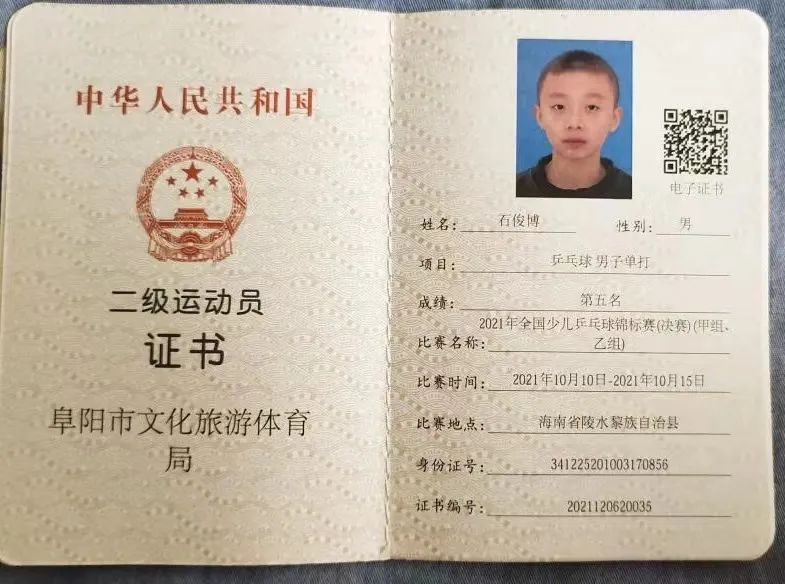 中华人民共和国
二级运动员
证书
阜阳市文化旅游体育
局
电子证书
姓名: 石俊博 性别: 男
项目: 乒乓球 男子单打
成绩: 第五名
2021年全国少儿乒乓球锦标赛(决赛)(甲组、
比赛名称: 乙组)
比赛时间: 2021年10月10日-2021年10月15日
比赛地点: 海南省陵水黎族自治县
身份证号: 341225201003170856
证书编号: 2021120620035